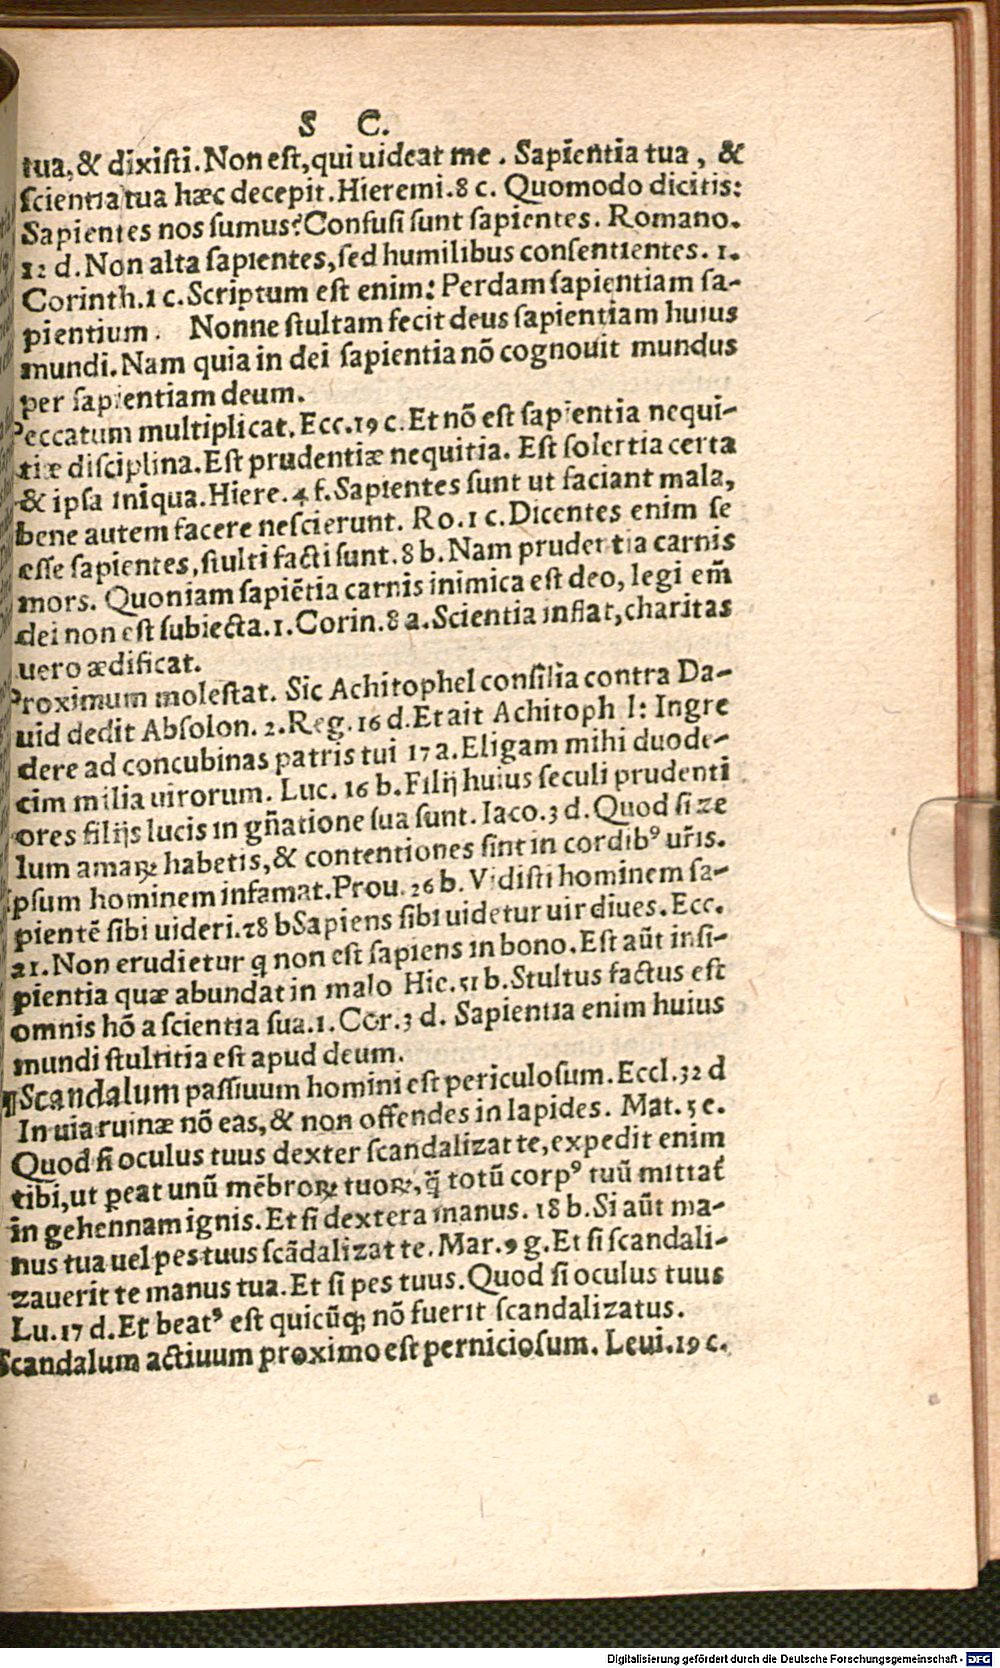 S C.
tua, & dixisti. Non est, qui uideat me. Sapientia tua, &
scientia tua hæc decepit. Hieremi. 8 c. Quomodo dicitis:
Sapientes nos sumus? Confusi sunt sapientes. Romano.
12 d. Non alta sapientes, sed humilibus consentientes. 1.
Corinth. 1 c. Scriptum est enim: Perdam sapientiam sa-
pientium. Nonne stultam fecit deus sapientiam huius
mundi. Nam quia in dei sapientia nõ cognouit mundus
per sapientiam deum.
Peccatum multiplicat. Ecc. 19 c. Et nõ est sapientia nequi-
tiæ disciplina. Est prudentiæ nequitia. Est solertia certa
& ipsa iniqua. Hiere. 4 f. Sapientes sunt ut faciant mala,
bene autem facere nescierunt. Ro. 1 c. Dicentes enim se
esse sapientes, stulti facti sunt. 8 b. Nam prudentia carnis
mors. Quoniam sapiẽtia carnis inimica est deo, legi em̃
dei non est subiecta. 1. Corin. 8 a. Scientia inflat, charitas
uero ædificat.
Proximum molestat. Sic Achitophel consilia contra Da-
uid dedit Absolon. 2. Reg. 16 d. Et ait Achitoph l: Ingre
dere ad concubinas patris tui 17 a. Eligam mihi duode-
cim milia uirorum. Luc. 16 b. Filij huius seculi prudenti
ores filijs lucis in gñatione sua sunt. Iaco. 3 d. Quod si ze
lum amaꝝ habetis, & contentiones sint in cordibꝰ ur̃is.
Ipsum hominem infamat. Prou. 26 b. Vidisti hominem sa-
pientẽ sibi uideri. 28 b Sapiens sibi uidetur uir diues. Ecc.
21. Non erudietur q non est sapiens in bono. Est aũt insi-
pientia quæ abundat in malo Hie. 51 b. Stultus factus est
omnis hõ a scientia sua. 1. Cor. 3 d. Sapientia enim huius
mundi stultitia est apud deum.
¶Scandalum passiuum homini est periculosum. Eccl. 32 d
In uia ruinæ nõ eas, & non offendes in lapides. Mat. 5 e.
Quod si oculus tuus dexter scandalizat te, expedit enim
tibi, ut ꝑeat unũ mẽbroꝝ tuoꝝ, q̃ totũ corpꝰ tuũ mittat̃
in gehennam ignis. Et si dextera manus. 18 b. Si aũt ma-
nus tua uel pes tuus scãdalizat te. Mar. 9 g. Et si scandali-
zauerit te manus tua. Et si pes tuus. Quod si oculus tuus
Lu. 17 d. Et beatꝰ est quicũqꝫ nõ fuerit scandalizatus.
Scandalum actiuum proximo est perniciosum. Leui. 19 c.
Digitalisierung gefördert durch die Deutsche Forschungsgemeinschaft - DFG